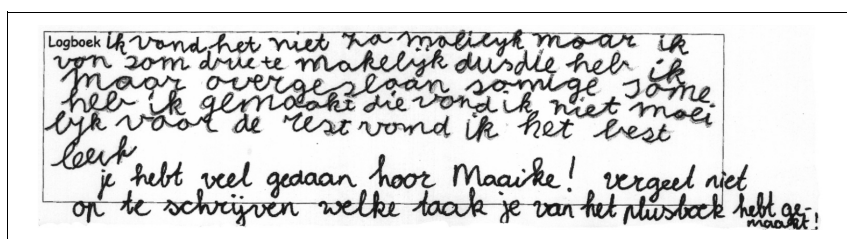 Logboek ik vond het niet zo molieyk maar ik
von som drie te makelijk dus die heb ik
maar overgeslaan somige some
heb ik gemaakt die vond ik niet moei
lijk voor de rest vond ik het best
leuk
je hebt veel gedaan hoor Maaike! vergeet niet
op te schrijven welke taak je van het plusboek hebt ge-
maakt!